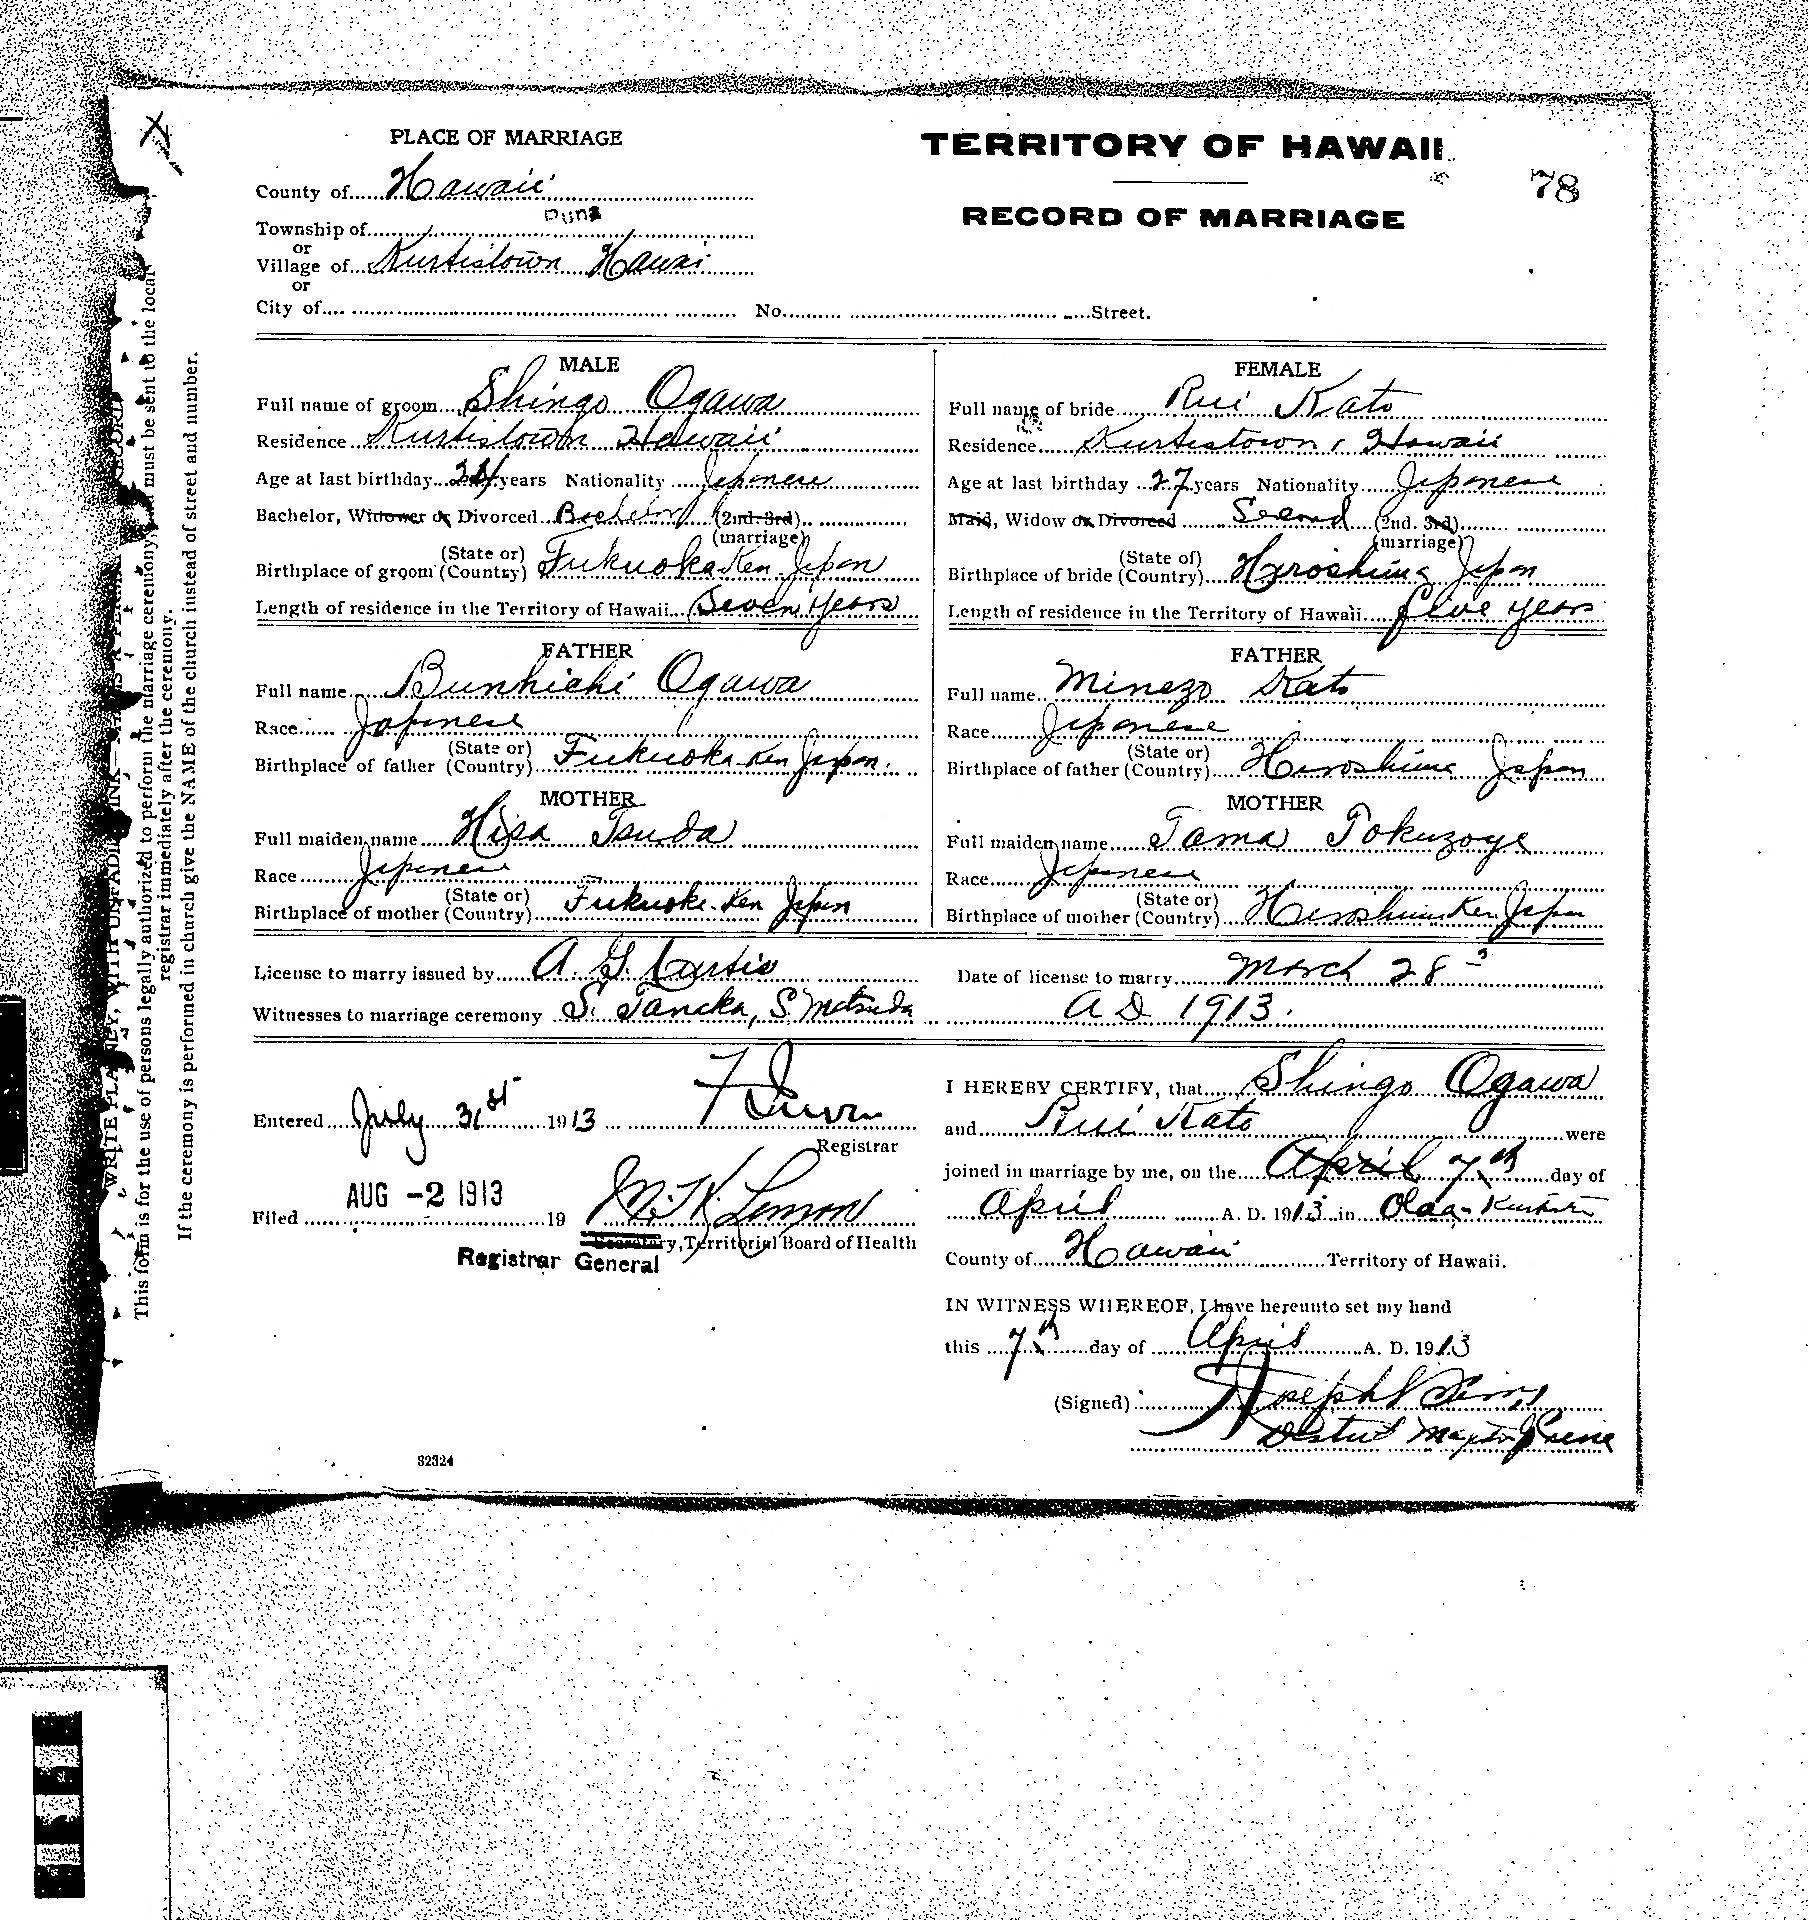 PLACE OF MARRIAGE
County of Hawaii
Puna
Township of
or
Village of Kurtistown Hawai
or
City of No. Street.
TERRITORY OF HAWAII
78
RECORD OF MARRIAGE
MALE
Full name of groom Shingo Ogawa
Residence Kurtistown Hawaii
Age at last birthday 24 years Nationality Japanese
Bachelor, Widower or Divorced Bachelor (2nd. 3rd)
(marriage)
Birthplace of groom (State or) (Country) Fukuoka Ken Japan
Length of residence in the Territory of Hawaii Seven Years
FATHER
Full name Bunhichi Ogawa
Race Japanese
Birthplace of father (State or) (Country) Fukuoka Ken Japan.
MOTHER
Full maiden name Hisa Tsuda
Race Japanese
Birthplace of mother (State or) (Country) Fukuoka Ken Japan
FEMALE
Full name of bride Rui Kato
Residence Kurtistown, Hawaii
Age at last birthday 27 years Nationality Japanese
Maid, Widow or Divorced Second (2nd. 3rd)
(marriage)
Birthplace of bride (State of) (Country) Hiroshima Japan
Length of residence in the Territory of Hawaii five years
FATHER
Full name Minezo Kato
Race Japanese
Birthplace of father (State or) (Country) Hiroshima Japan
MOTHER
Full maiden name Tama Tokuzoye
Race Japanese
Birthplace of mother (State or) (Country) Hiroshima Ken Japan
License to marry issued by A. G. Curtis
Date of license to marry March 28
Witnesses to marriage ceremony S. Tanaka, S. Matsuda
A D 1913.
Entered July 31st 1913
Registrar
AUG -2 1913
Filed 19 M. K. Lemon
Secretary, Territorial Board of Health
Registrar General
I HEREBY CERTIFY, that Shingo Ogawa
and Rui Kato were
joined in marriage by me, on the April 7th day of
April A. D. 1913 in Olaa-
County of Hawaii Territory of Hawaii.
IN WITNESS WHEREOF, I have hereunto set my hand
this 7th day of April A. D. 1913
(Signed) Joseph
32324
WRITE PLAINLY, WITH UNFADING INK—THIS IS A PERMANENT RECORD
This form is for the use of persons legally authorized to perform the marriage ceremony, must be sent to the local
registrar immediately after the ceremony.
If the ceremony is performed in church give the NAME of the church instead of street and number.